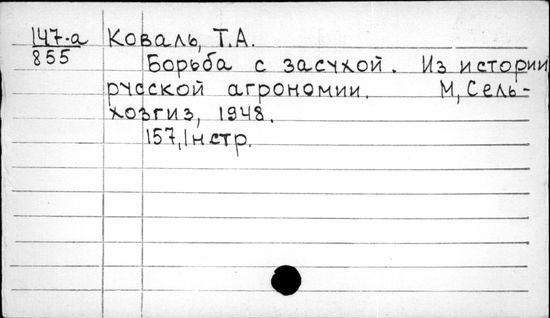 147-а Коваль, Т.А.
855
Борьба с засухой. Из истории
русской агрономии. М, Сель-
хозгиз, 1948.
157,1нстр.